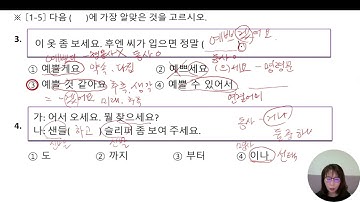 ※ [1-5] 다음 ( )에 가장 알맞은 것을 고르시오.
3.
이 옷 좀 보세요. 후엔 씨가 입으면 정말 ( ).
① 예쁠게요 약속, 다짐 ② 예쁘세요 (으)세요 - 명령문
③ 예쁠 것 같아요 추측, 생각 ④ 예쁠 수 있어서
미래, 추측 연결어미
4.
가: 어서 오세요. 뭘 찾으세요?
나: 샌들( 하고 )슬리퍼 좀 보여 주세요.
① 도 ② 까지 ③ 부터 ④ 이나 선택